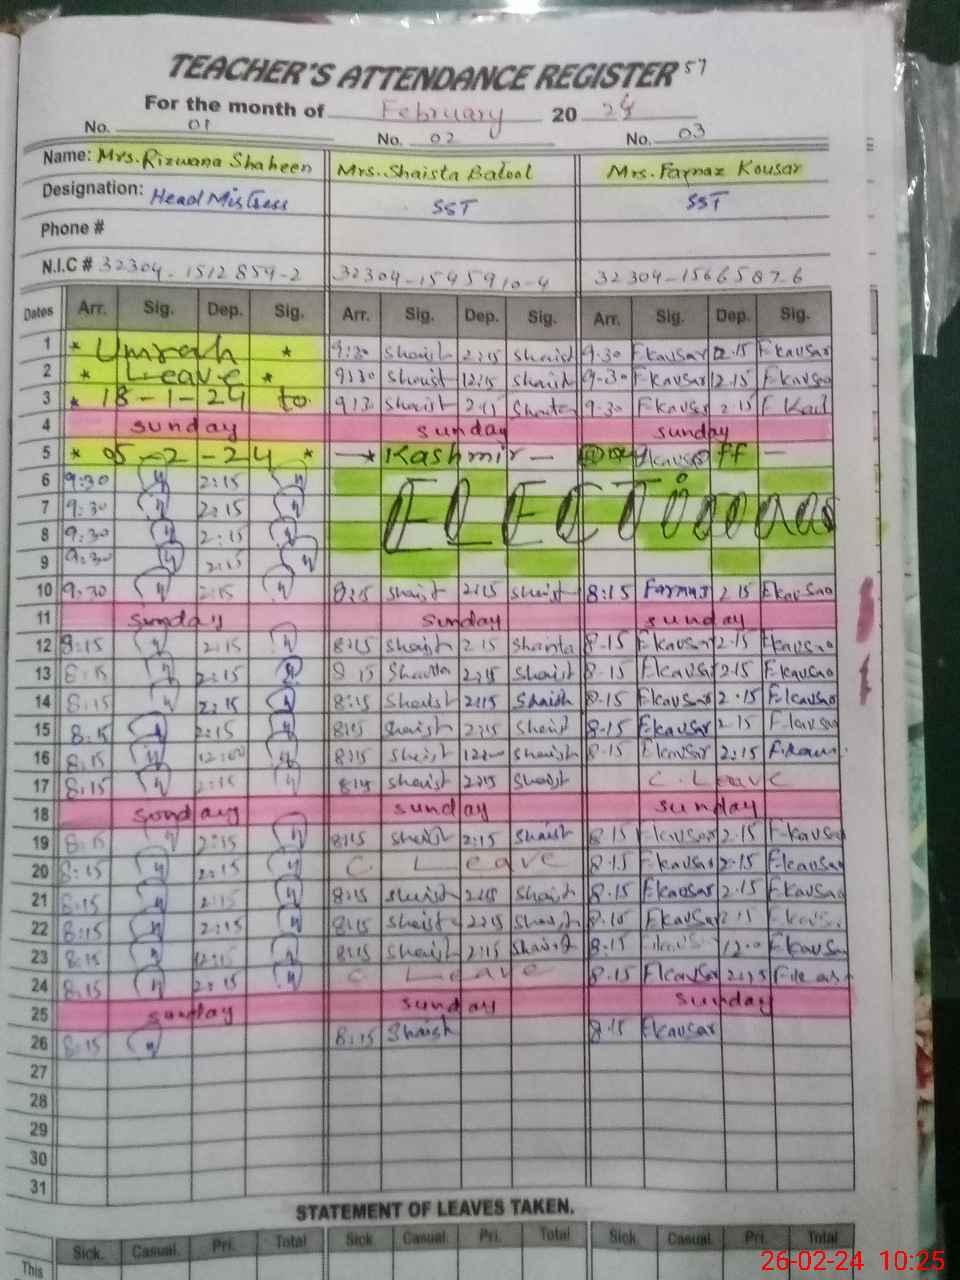 TEACHER'S ATTENDANCE REGISTER 57
For the month of February 20 24
No. 01 No. 02 No. 03
Name: Mrs. Rizwana Shaheen Mrs. Shaista Batool Mrs. Farnaz Kousar
Designation: Head Mistress SST SST
Phone #
N.I.C # 32304-1512859-2 32304-1545910-4 32304-1566587-6
Dates Arr. Sig. Dep. Sig. Arr. Sig. Dep. Sig. Arr. Sig. Dep. Sig.
1 * Umrah * 9:30 Shaist 2:15 Shaist 9-30 F.kausar 2.15 F.kausar
2 * Leave * 9:30 Shaist 12:15 Shaist 9-30 F.kausar 12.15 F.kausar
3 * 18-1-24 to Shaist 2:15 9-30 F.kausar 2.15
4 sunday sunday sunday
5 * 05-2-24 * * Kashmir - Day off -
6 9:30 2:15
7 9:30 2:15 ELECTions
8 9:30 2:15
9 9:30 2:15
10 9:30 2:15 8:15 Shaist 2:15 Shaist 8:15 2.15 F.kausar
11 sunday sunday sunday
12 8:15 2:15 8:15 Shaist 2:15 Shaista 8-15 F.kausar 2-15 F.kausar
13 8:15 2:15 8:15 Shaista 2:15 Shaist 8-15 F.kausar 2-15 F.kausar
14 8:15 2:15 8:15 Shaist 2:15 Shaist 8-15 F.kausar 2.15 F.kausar
15 8:15 2:15 8:15 Shaist 2:15 Shaist 8-15 F.kausar 2-15 F.kausar
16 8:15 12:00 8:15 Shaist 12:00 Shaist 8-15 F.kausar 2:15
17 8:15 2:15 8:15 Shaist 2:15 Shaist C. Leave
18 sunday sunday sunday
19 8:15 2:15 8:15 Shaist 2:15 Shaist 8.15 F.kausar 2-15 F.kausar
20 8:15 2:15 C. Leave 8.15 F.kausar 2-15 F.kausar
21 8:15 2:15 8:15 Shaist 2:15 Shaist 8-15 F.kausar 2-15 F.kausar
22 8:15 2:15 8:15 Shaist 2:15 Shaist F.kausar 2:15
23 8:15 12:15 8:15 Shaist 2:15 Shaist 8:15 F.kausar
24 8:15 2:15 C. Leave 8.15 F.kausar
25 sunday sunday sunday
26 8:15 8:15 Shaist 8.15 F.kausar
27
28
29
30
31
STATEMENT OF LEAVES TAKEN.
Sick. Casual. Pri. Total Sick Casual. Pri. Total Sick. Casual Pri. Total
This
26-02-24 10:25